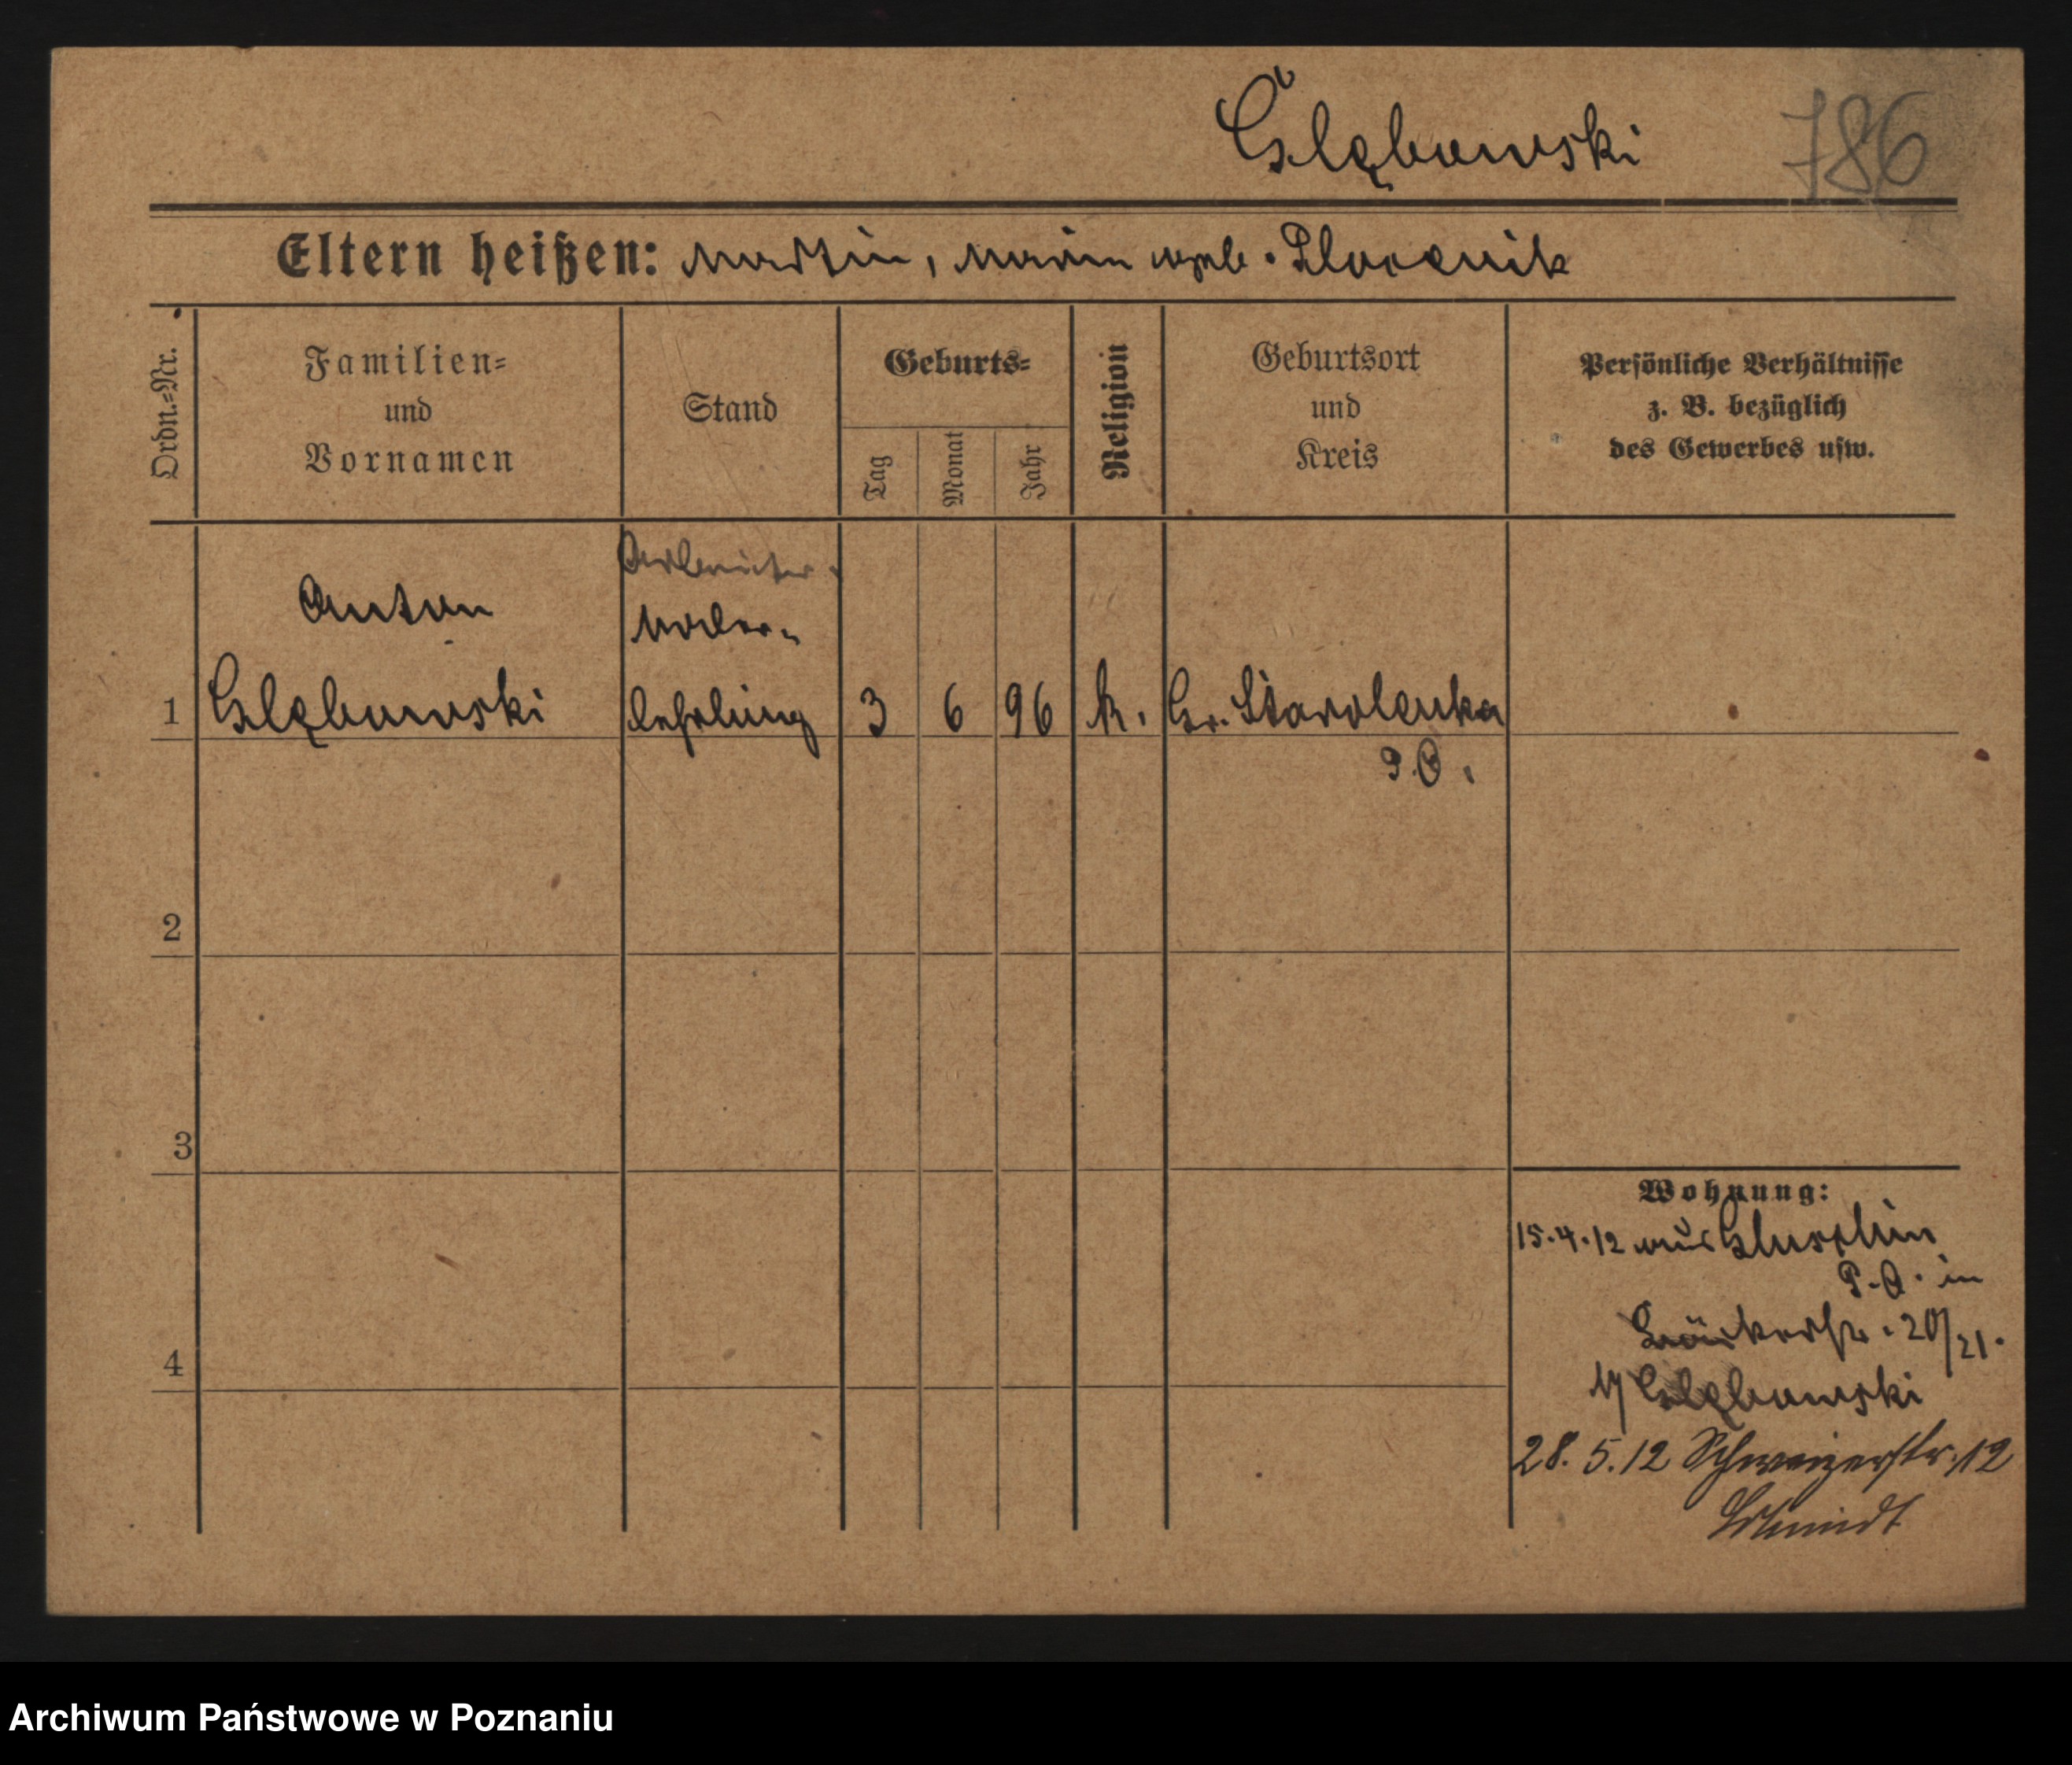 Człębowski 786
Eltern heißen: Martin, Maria geb. Plocenik
Ordn.=Nr.
Familien=
und
Vornamen
Stand
Geburts=
Tag
Monat
Jahr
Religion
Geburtsort
und
Kreis
Persönliche Verhältnisse
z. B. bezüglich
des Gewerbes usw.
Arbeiter
Anton
Maler-
1 lehrling 3 6 96 k. Gr. Starolenka
P. O.
2
3
Wohnung:
15.4.12 aus Gluschin
P. O. in
20/21.
4
28. 5. 12 Schweizerstr. 12
Schmidt
Archiwum Państwowe w Poznaniu